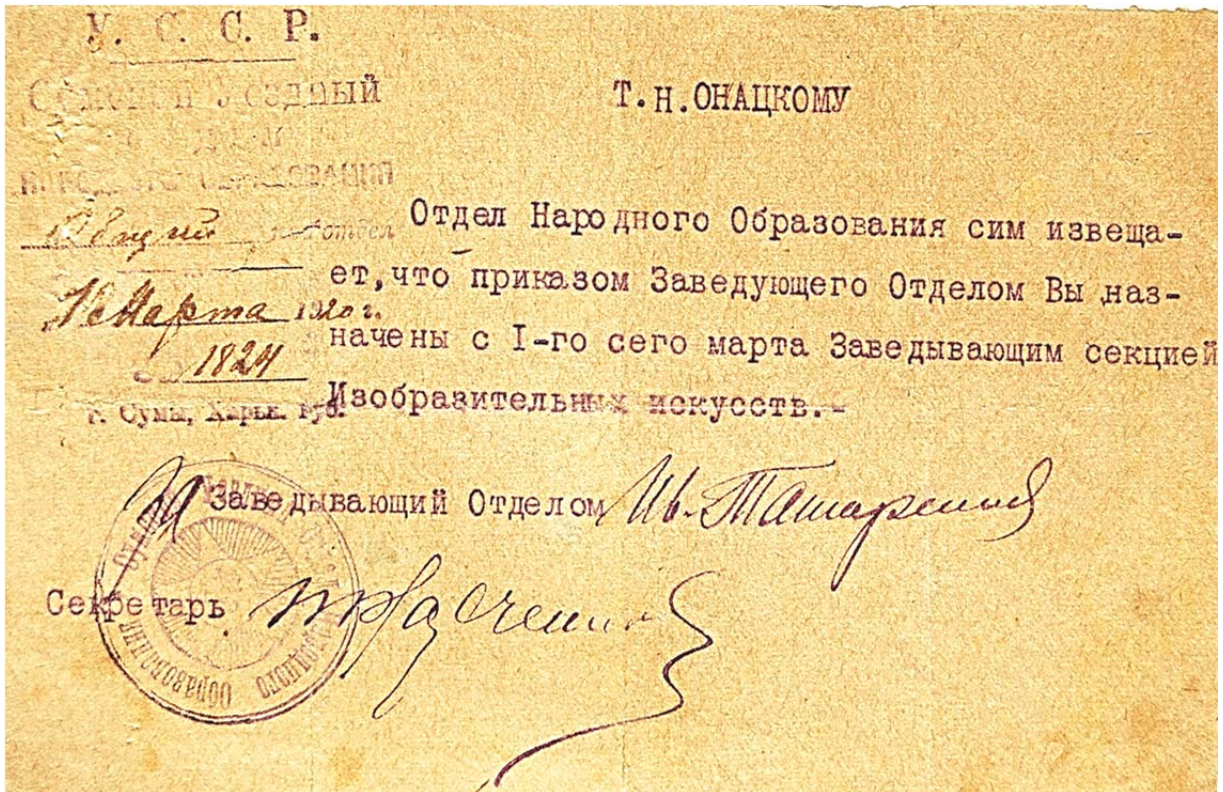 У. С. С. Р.
Сумской Уездный
Отдел
НАРОДНОГО ОБРАЗОВАНИЯ
Общий подотдел
Марта 1920 г.
1824
г. Сумы, Харьк. губ.
Т.Н.ОНАЦКОМУ
Отдел Народного Образования сим извеща-
ет,что приказом Заведующего Отделом Вы наз-
начены с I-го сего марта Заведывающим секцией
Изобразительных искусств.-
Заведывающий Отделом Ив.
Секретарь
Народного Образования